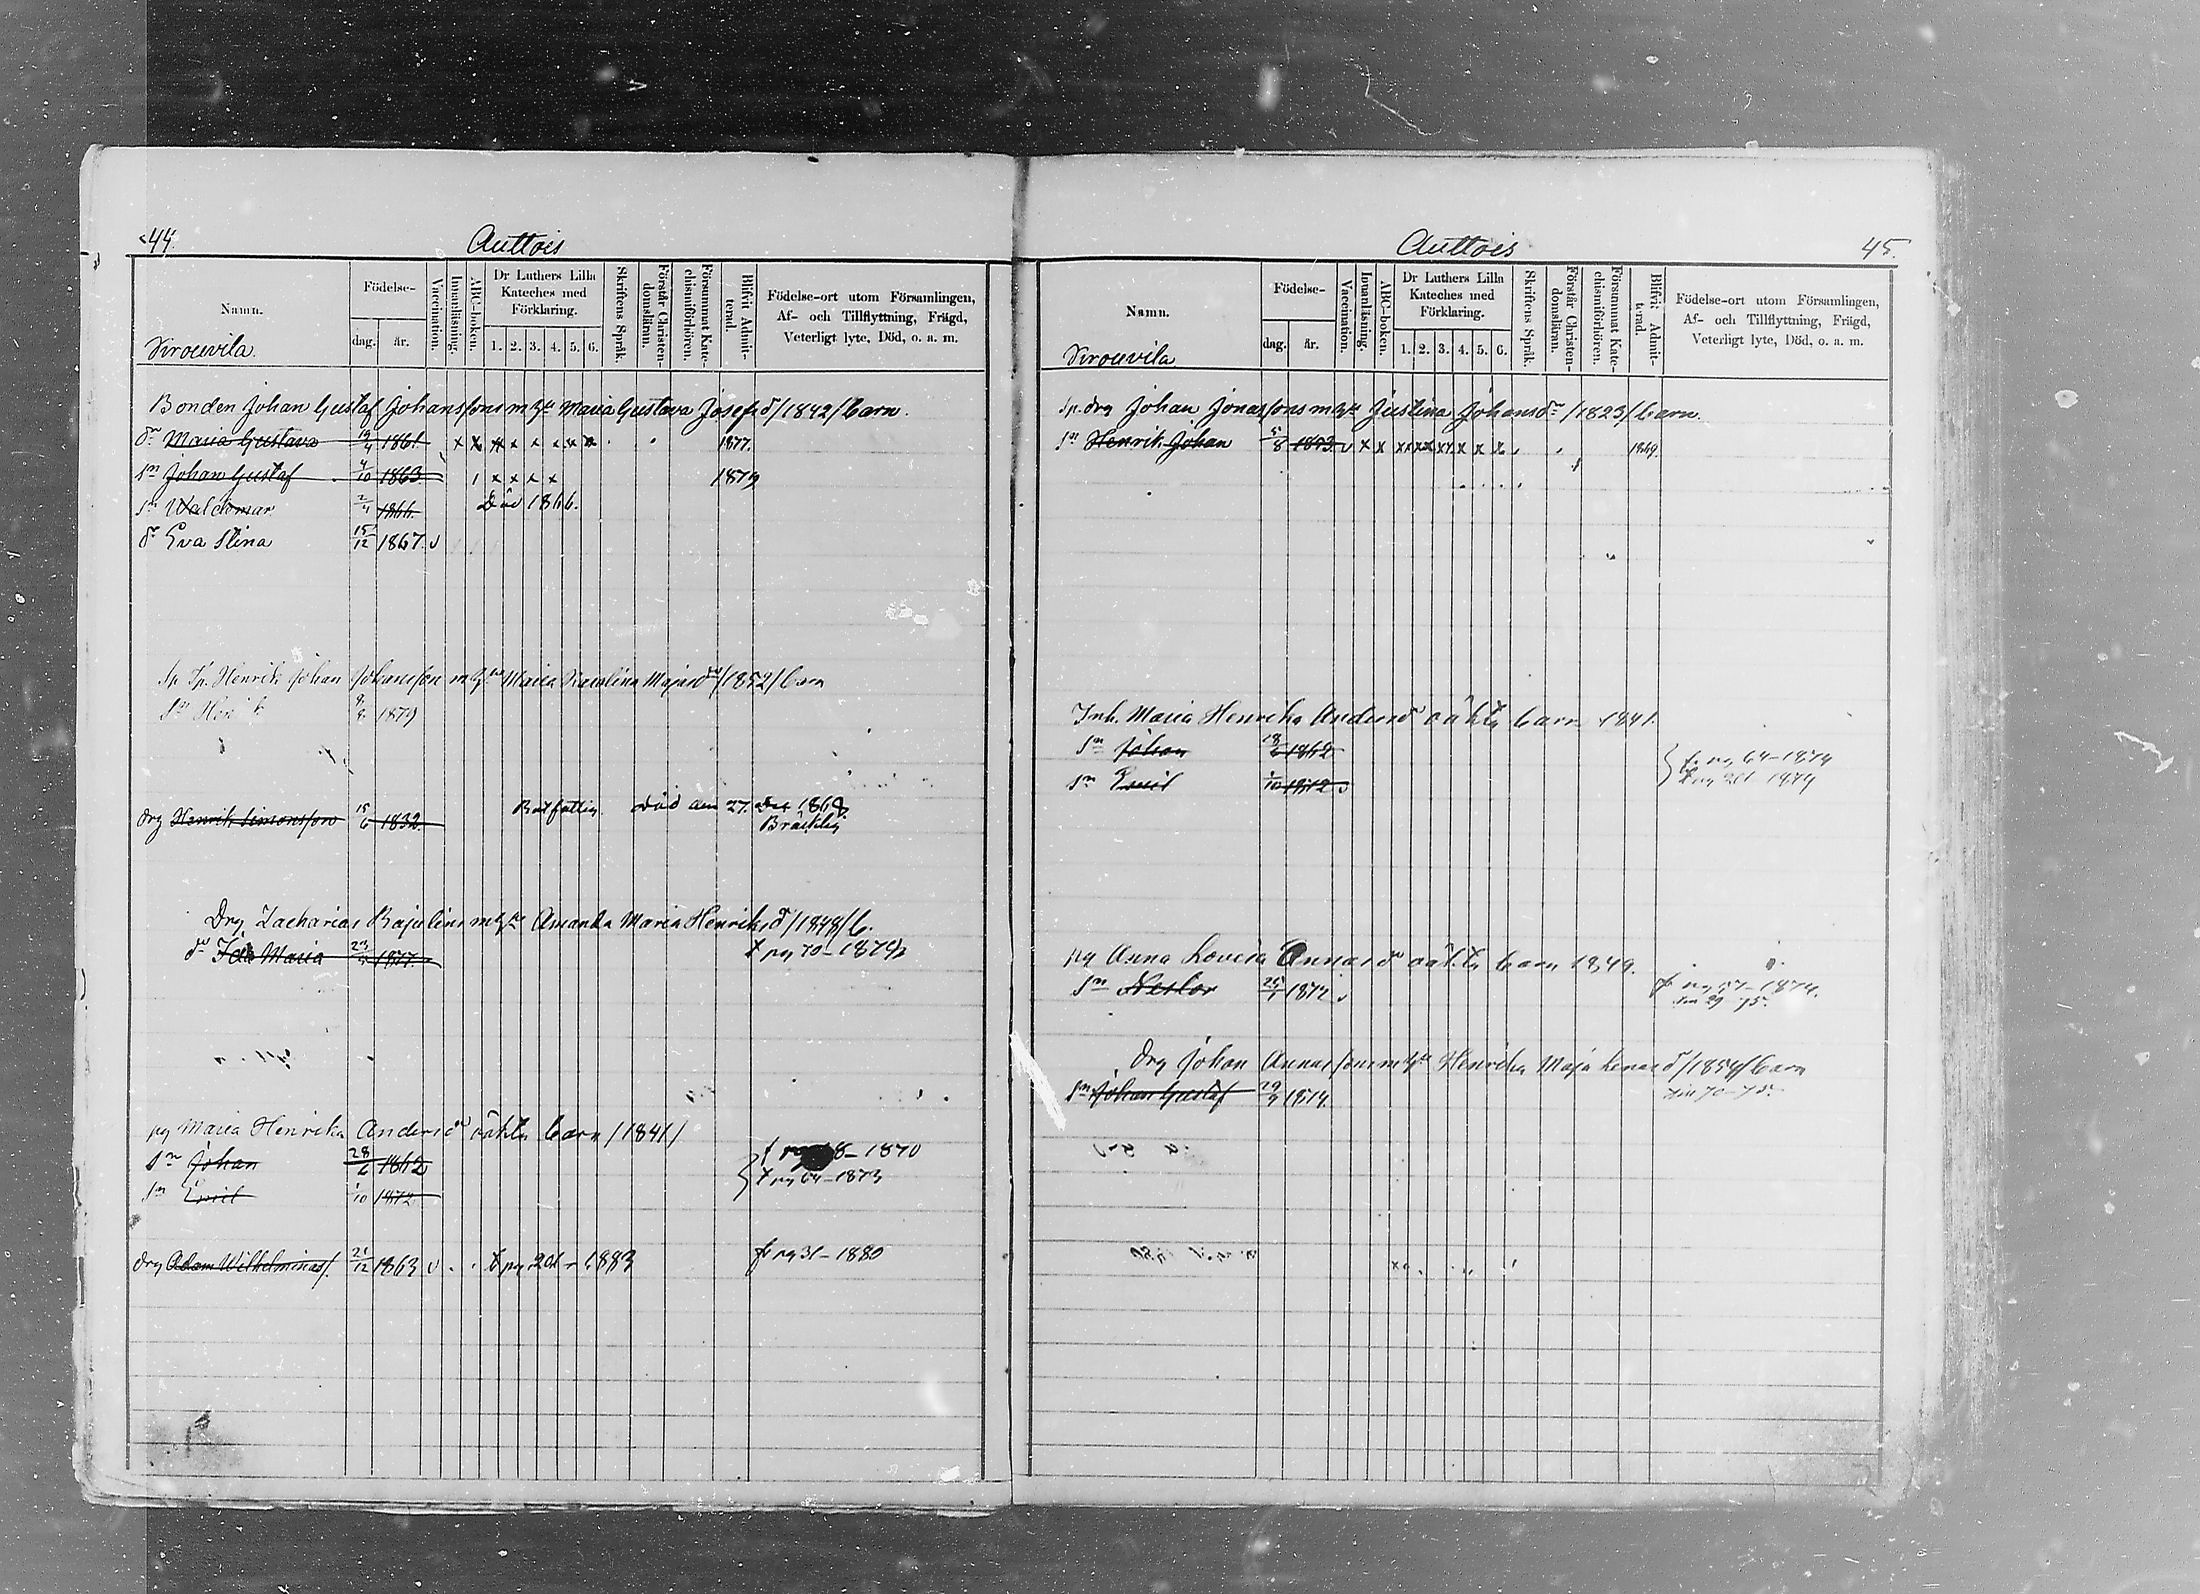 44.
Auttois
Namn.
Födelse-
dag.
år.
Vaccination.
Innanläsning.
ABC-boken.
Dr Luthers Lilla
Kateches med
Förklaring.
1. 2. 3. 4. 5. 6.
Skriftens Språk.
Förstår Christen-
domslärun.
Försummat Kate-
chismiförhören.
Blifvit Admit-
terad.
Födelse-ort utom Församlingen,
Af- och Tillflyttning, Frägd,
Veterligt lyte, Död, o. a. m.
Sirouvila.
Bonden Johan Gustaf Johanssons m Hu Maria Gustava Josefsd /1842/ barn.
dr Maria Gustava 19/4 1861. x x x x x x x x 1877.
sn Johan Gustaf 4/10 1863. 1 x x x x 1879
sn Waldemar 2/4 1866. Död 1866.
dr Eva Stina 15/12 1867. v
Sp. Henrik Johan Johansson m Hu Maria Karolina Majasdr /1852/ barn
sn Hen k 8/8 1879
drg Henrik Simonsson 15/6 1832. död den 27. 1868.
Bräcklig
Drg Zacharias Bajulins m Hu Amanda Maria Henriksd /1848/ b.
dr Ida Maria 23/ 1877. t pg 70-1879
pg Maria Henrika Andersdr oäkta barn /1841/
sn Johan 28/6 1862 f 8-1870
sn Emil 1/10 1872 t pg 64-1873
drg Adam Wilhelminas s. 21/12 1863 v t pg 201-1883 f pg 31-1880
Auttois
45.
Namn.
Födelse-
dag.
år.
Vaccination.
Innanläsning.
ABC-boken.
Dr Luthers Lilla
Kateches med
Förklaring.
1. 2. 3. 4. 5. 6.
Skriftens Språk.
Förstår Christen-
domslärun.
Försummat Kate-
chismiförhören.
Blifvit Admit-
terad.
Födelse-ort utom Församlingen,
Af- och Tillflyttning, Frägd,
Veterligt lyte, Död, o. a. m.
Sirouvila
Sp. drg Johan Jonassons m Hu Justina Johansdr /1823/ barn.
sn Henrik Johan 5/8 1853. v x x x x x x x x 1869.
Inh. Maria Henrika Andersdr oäkta barn 1841.
sn Johan 28/6 1862 f. pg 64-1874
sn Emil 1/10 1872 v t pg 201 1879
pg Anna Lovisa Annasdr oäkta barn 1849.
sn Nestor 25/1 1872 v f pg 57-1874.
29-75.
Drg Johan Annassons m Hu Henrika Maja Lenasd /1854/ barn
sn Johan Gustaf 29/9 1874. 70-75.